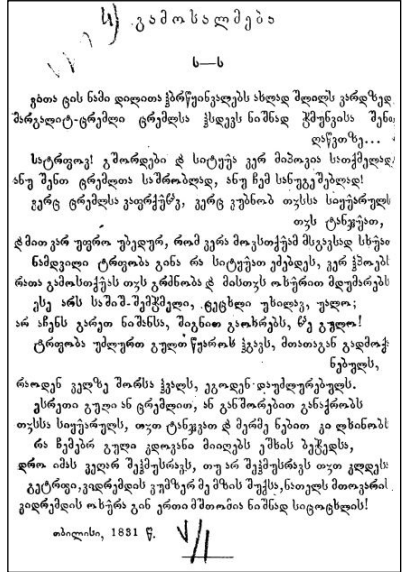 გამოსალმება
ს—ს
ვითა ცის ნამი დილითა ჰბრწყინვალებს ახლად შლილს ვარდზედ
მარგალიტ-ცრემლი ცრემლსა ჰსდევს ნიშნად ჭმუნვისა შენ
ღაწვთზე...
სატრფოვ! გშორდები და სიტყუა ვერ მიპოვია სათქმელად
ანუ შენთ ცრემლთა საშრობლად, ანუ ჩემ სანუგეშებლად!
ვერც ცრემლსა ვაფრქუევ, ვერც ვუბნობ თჳსსა სიყუარულს
თჳს ტანჯუათ,
და მით ვარ უფრო უბედურ, რომ ვერა მოვსთქუამ მსგავსად სხუათ
ნამდვილი ტრფობა გინა რა სიტყუათ ეძებდეს, ვერ ჰპოებს
რათა გამოსთქუას თჳს გრძნობა და მისთჳს ოხურით მდუმარებს
ესე არს საშიშ-შემჭმელი, ცეცხლი უხილავ, უალო;
არ აჩენს გარეთ ნიშანსა, შიგნით გაოხრებს, ჵე გულო!
ტრფობა უძლურთ გულთ წყაროს ჰგავს, მთათაგან გადმოქა
ნებულს,
რაოდენ ველზე შორსა ჰვალს, ეგოდენ დაუძლურებულს.
ესრეთი გული ან ცრემლით, ან განშორებით განაქრობს
თჳსსა სიყუარულს, თჳთ ტანჯვათ და მერმე ნებით კი ლხინობს
რა ჩემებრ გული კდოვანი მიიღებს ეშხის ბეჭედსა,
დრო იმას ვეღარ შეჰმუსრავს, თუ არ შეჰმუსრავს თჳთ კლდესა
გეტრფი, ვიდრემდის ვუმზერ მე მზის შუქსა, ნათელს მთოვარის
ვიდრემდის ოხურა გინ ერთი მშთომია ნიშნად სიცოცხლის!
თბილისი, 1831 წ.